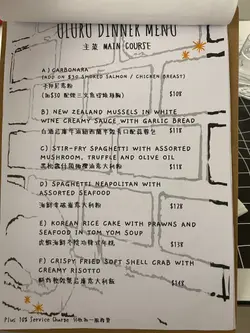 ULURU DINNER MENU
主菜 MAIN COURSE
A) CARBONARA
(ADD ON $30 SMOKED SALMON / CHICKEN BREAST)
卡邦尼意粉
(加$30 配煙三文魚或雞胸)
$108
B) NEW ZEALAND MUSSELS IN WHITE
WINE CREAMY SAUCE WITH GARLIC BREAD
$118
C) STIR-FRY SPAGHETTI WITH ASSORTED
MUSHROOM, TRUFFLE AND OLIVE OIL
$113
D) SPAGHETTI NEAPOLITAN WITH
ASSORTED SEAFOOD
$128
E) KOREAN RICE CAKE WITH PRAWNS AND
SEAFOOD IN TOM YOM SOUP
$138
F) CRISPY FRIED SOFT SHELL CRAB WITH
CREAMY RISOTTO
$148
Plus 10% Service Charge 另收加一服務費